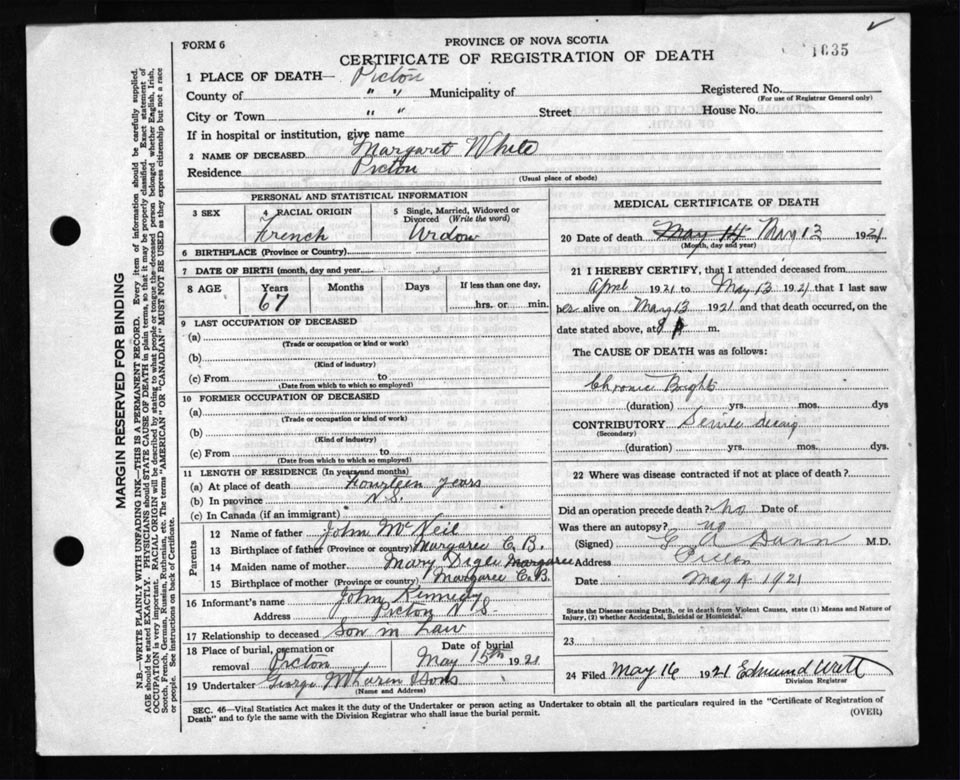 FORM 6
PROVINCE OF NOVA SCOTIA
1635
CERTIFICATE OF REGISTRATION OF DEATH
1 PLACE OF DEATH— Pictou
County of " " Municipality of
Registered No.
(For use of Registrar General only)
City or Town " " Street House No.
If in hospital or institution, give name
2 NAME OF DECEASED Margaret White
Residence Pictou
(Usual place of abode)
PERSONAL AND STATISTICAL INFORMATION
3 SEX
4 RACIAL ORIGIN French
5 Single, Married, Widowed or Divorced (Write the word) Widow
6 BIRTHPLACE (Province or Country)
7 DATE OF BIRTH (month, day and year)
8 AGE Years Months Days If less than one day,
67 hrs. or min.
9 LAST OCCUPATION OF DECEASED
(a)
(Trade or occupation or kind or work)
(b)
(Kind of industry)
(c) From to
(Date from which to which so employed)
10 FORMER OCCUPATION OF DECEASED
(a)
(Trade or occupation or kind of work)
(b)
(Kind of industry)
(c) From to
(Date from which to which so employed)
11 LENGTH OF RESIDENCE (In years and months)
(a) At place of death Fourteen years
(b) In province N.S.
(c) In Canada (if an immigrant)
Parents
12 Name of father John McNeil
13 Birthplace of father (Province or country) Margaree C. B.
14 Maiden name of mother Mary Margaree
15 Birthplace of mother (Province or country) Margaree C. B.
16 Informant's name John Kennedy
Address Pictou N S.
17 Relationship to deceased Son in Law
18 Place of burial, cremation or removal Pictou
Date of burial May 15th 1921
19 Undertaker George & Sons
(Name and Address)
MEDICAL CERTIFICATE OF DEATH
20 Date of death May 14 May 13 1921
(Month, day and year)
21 I HEREBY CERTIFY, that I attended deceased from
April 1921 to May 13 1921 that I last saw
her alive on May 13 1921 and that death occurred, on the
date stated above, at 9 m.
The CAUSE OF DEATH was as follows:
Chronic Brights
(duration) yrs. mos. dys
CONTRIBUTORY Senile decay
(Secondary)
(duration) yrs. mos. dys.
22 Where was disease contracted if not at place of death?
Did an operation precede death? no Date of
Was there an autopsy? no
(Signed) G A Dunn M.D.
Address Pictou
Date May 1921
State the Disease causing Death, or in death from Violent Causes, state (1) Means and Nature of
Injury, (2) whether Accidental, Suicidal or Homicidal.
23
24 Filed May 16 1921 Edmund
Division Registrar
SEC. 46—Vital Statistics Act makes it the duty of the Undertaker or person acting as Undertaker to obtain all the particulars required in the "Certificate of Registration of
Death" and to fyle the same with the Division Registrar who shall issue the burial permit.
(OVER)
MARGIN RESERVED FOR BINDING
N.B.—WRITE PLAINLY WITH UNFADING INK—THIS IS A PERMANENT RECORD. Every item of information should be carefully supplied.
AGE should be stated EXACTLY. PHYSICIANS should STATE CAUSE OF DEATH in plain terms, so that it may be properly classified. Exact statement of
OCCUPATION is very important. RACIAL ORIGIN will be described by stating to what people or tongue the deceased person belonged whether English, Irish,
Scotch, French, German, Russian, Ruthenian, etc. The terms "AMERICAN" OR "CANADIAN" MUST NOT BE USED as they express citizenship but not a race
or people. See instructions on back of Certificate.